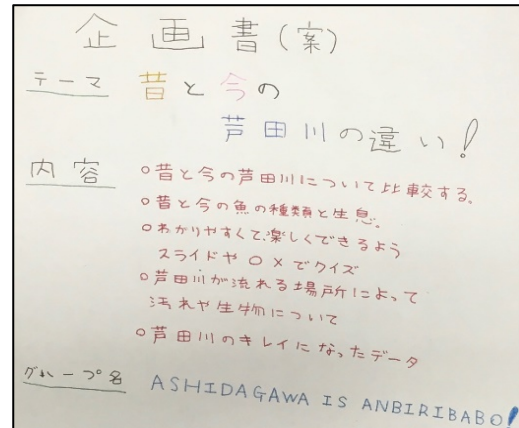 企画書(案)
テーマ 昔と今の
芦田川の違い!
内容 ○昔と今の芦田川について比較する。
○昔と今の魚の種類と生息。
○わかりやすくて、楽しくできるよう
スライドや○×でクイズ
○芦田川が流れる場所によって
汚れや生物について
○芦田川のキレイになったデータ
グループ名 ASHIDAGAWA IS ANBIRIBABO!